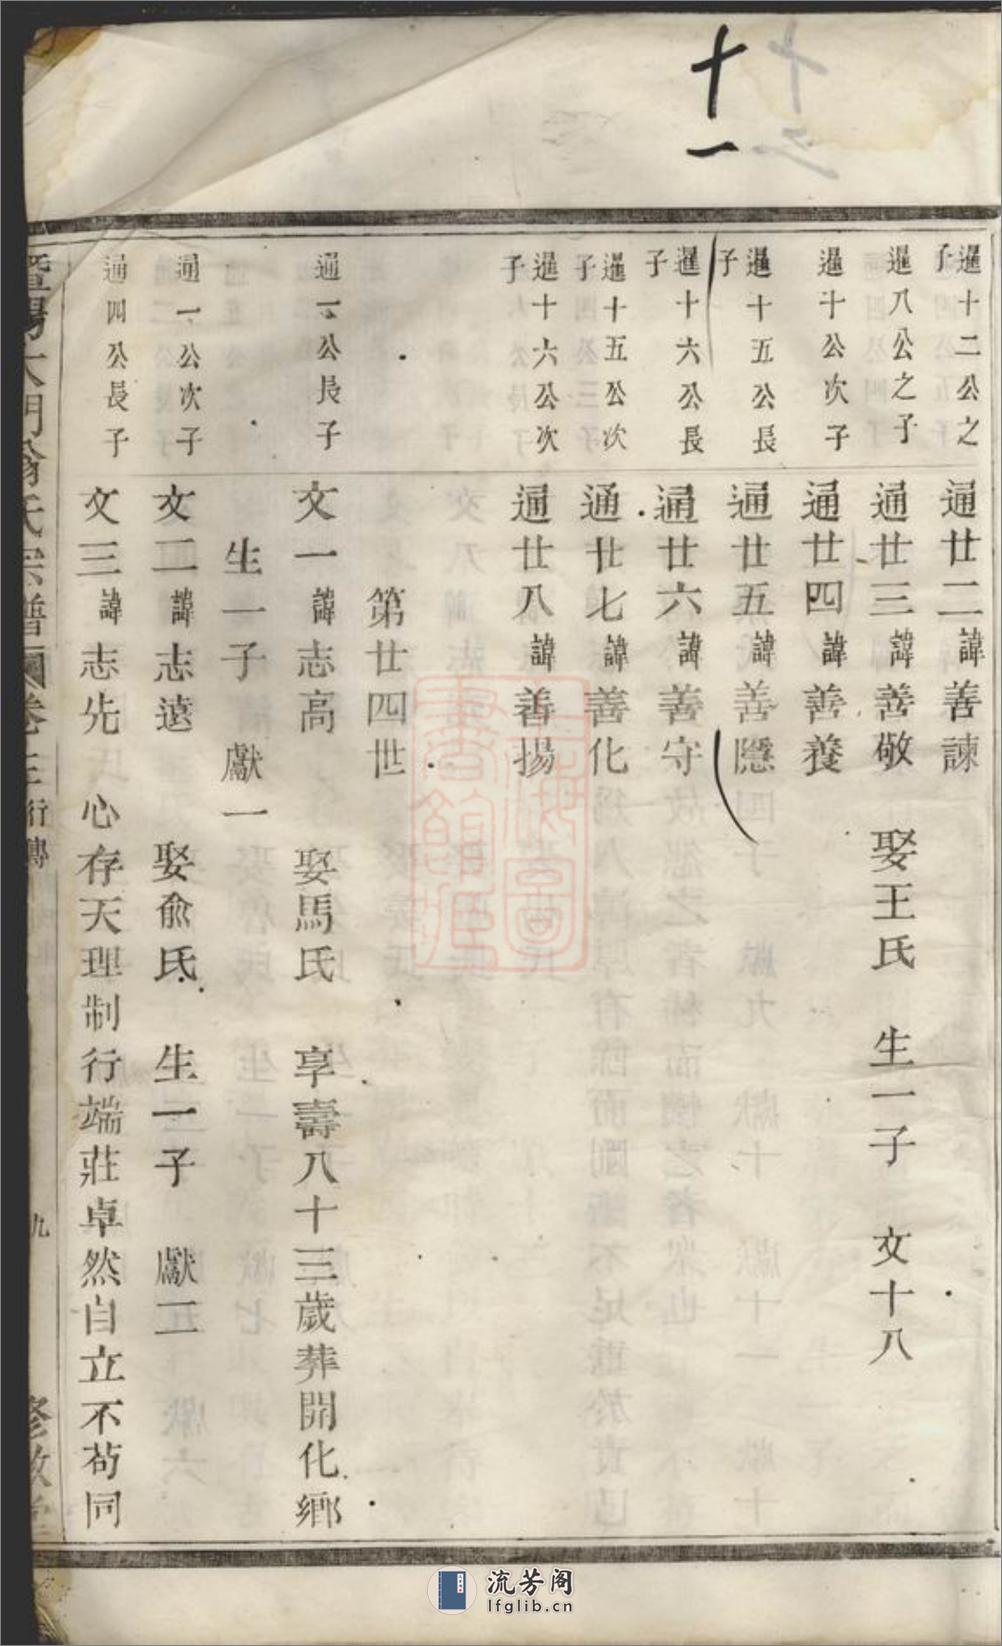 十一
暹十二公之子
通廿二諱善諫
暹八公之子
通廿三諱善敬 娶王氏 生一子 文十八
暹十公次子
通廿四諱善養
暹十五公長子
通廿五諱善隱
暹十六公長子
通廿六諱善守
暹十五公次子
通廿七諱善化
暹十六公次子
通廿八諱善揚
第廿四世
通一公長子
文一諱志高 娶馬氏 享壽八十三歲葬開化鄉
生一子 獻一
通一公次子
文二諱志遠 娶俞氏 生一子 獻二
通四公長子
文三諱志先 心存天理制行端莊卓然自立不苟同
暨陽大門翁氏宗譜 卷三 行傳 九
流芳阁
lfglib.cn